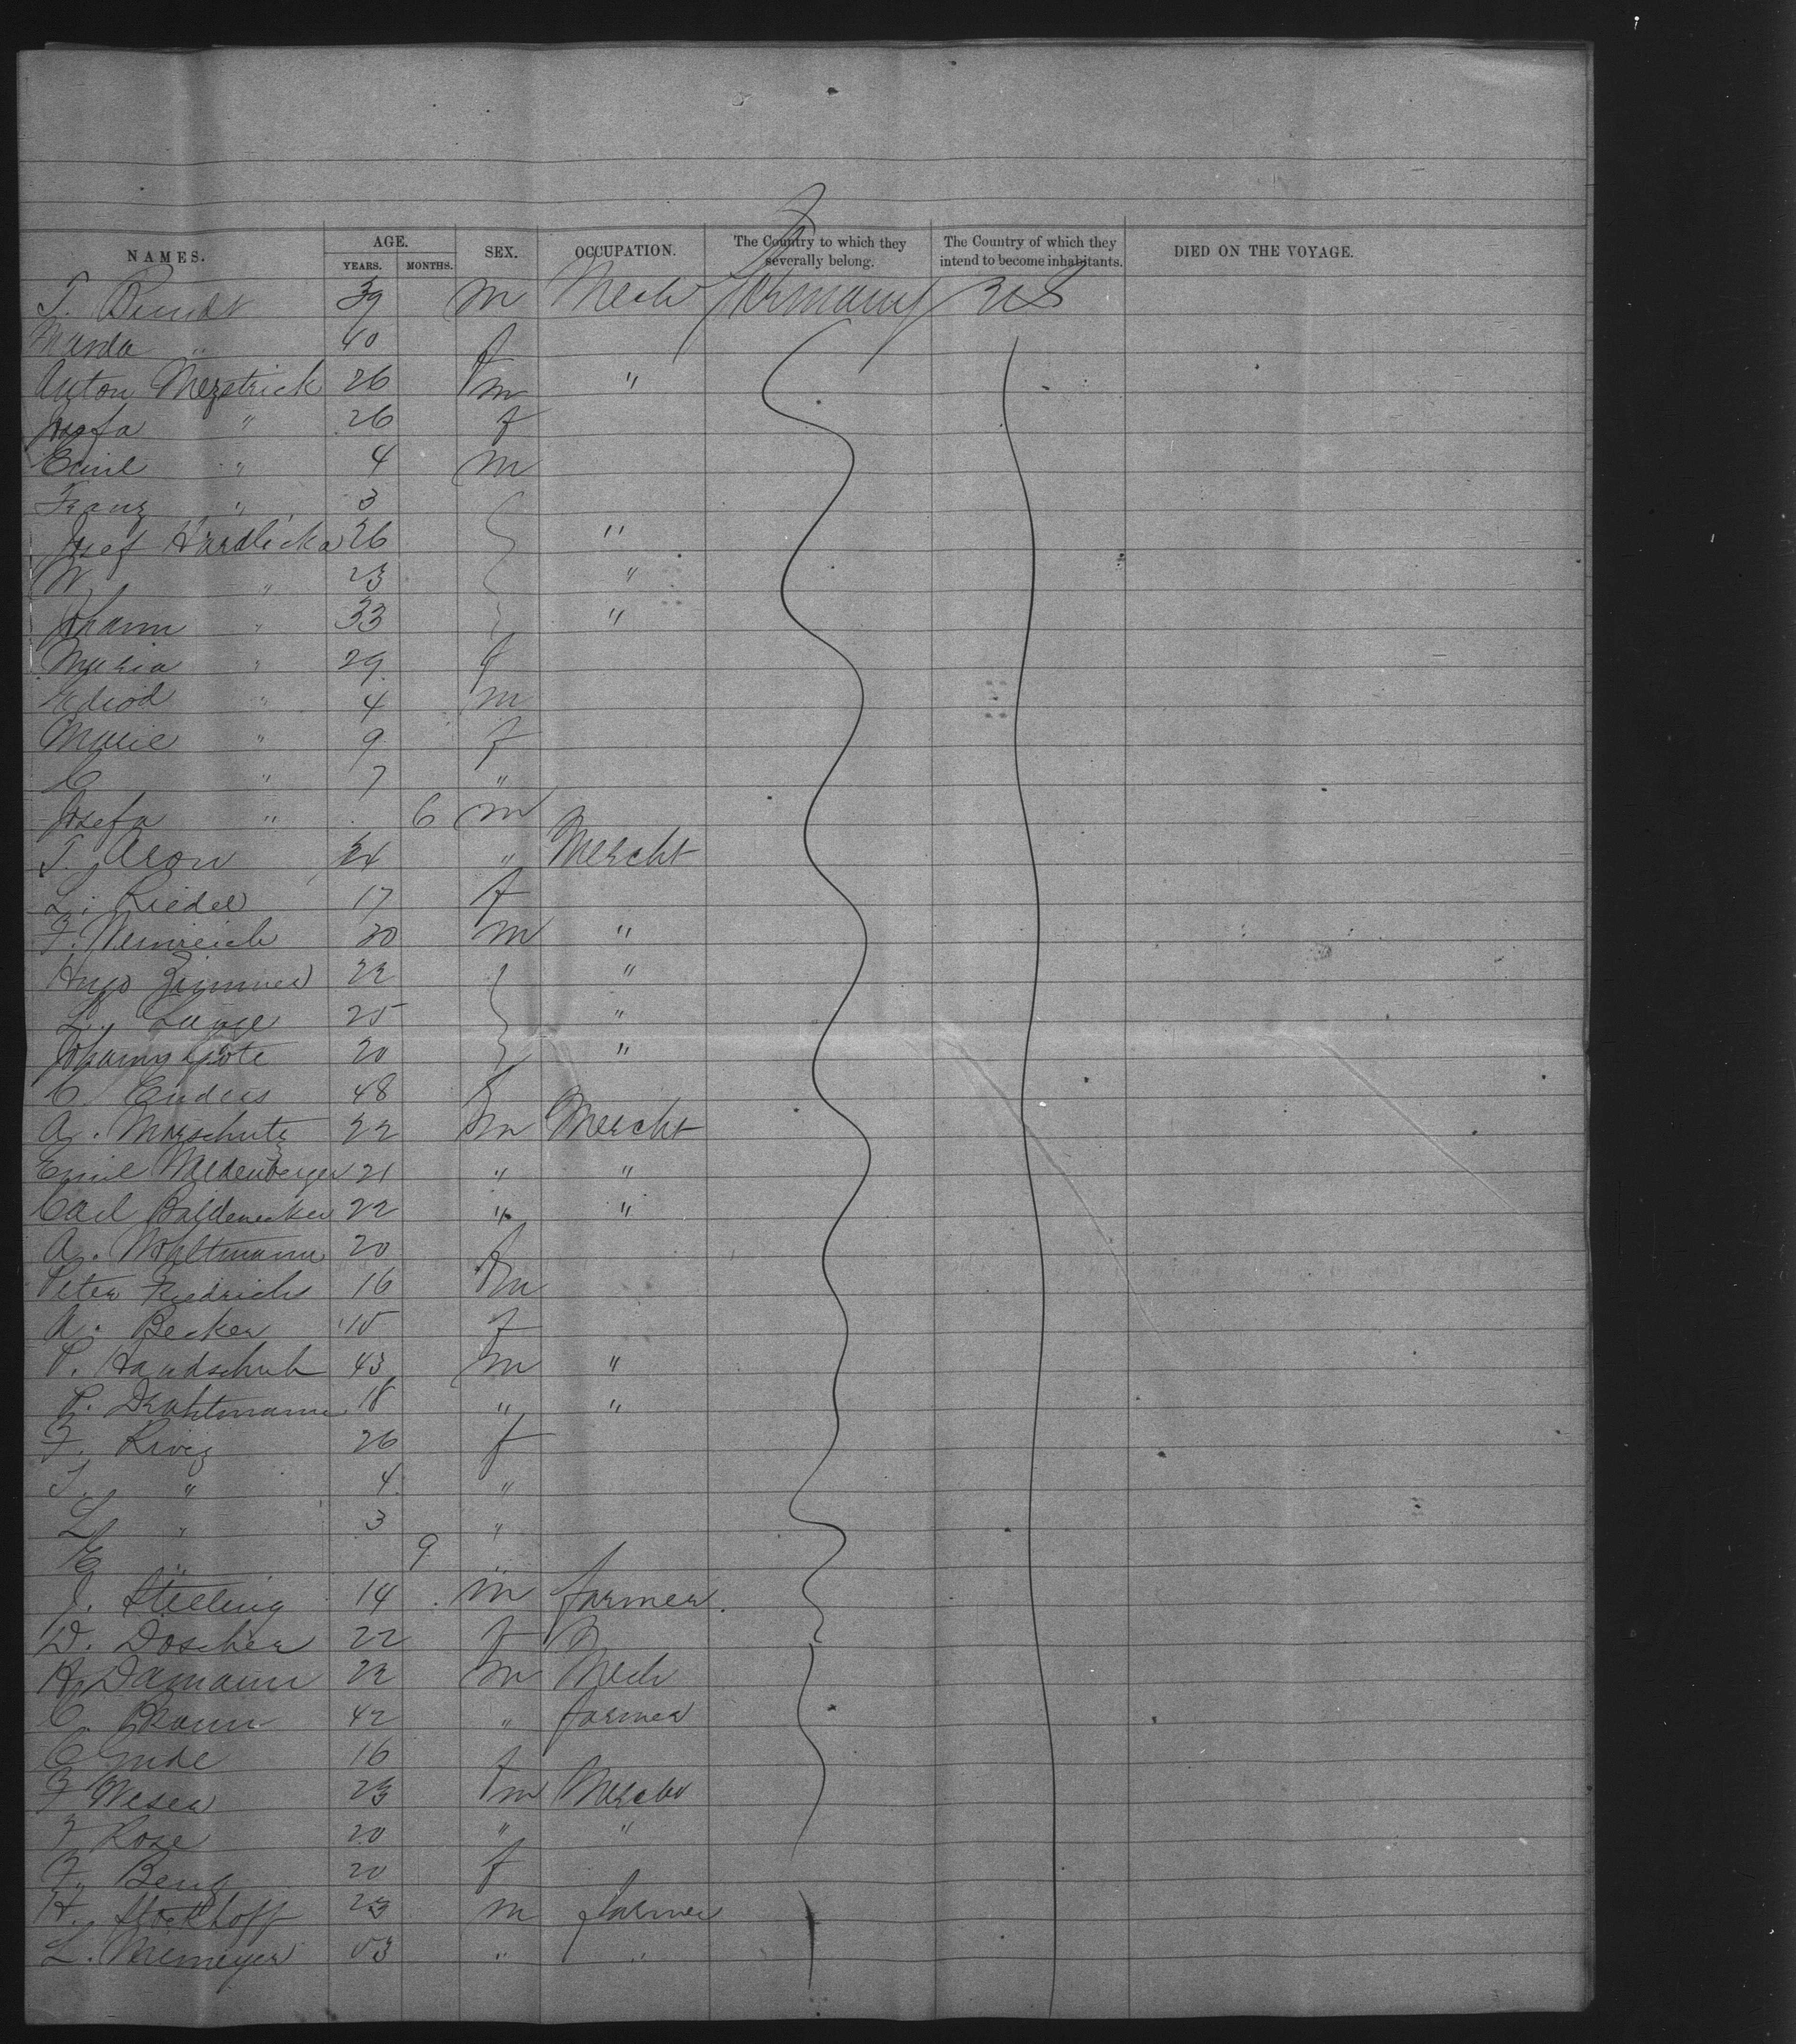 NAMES. AGE. YEARS. MONTHS. SEX. OCCUPATION. The Country to which they severally belong. The Country of which they intend to become inhabitants. DIED ON THE VOYAGE.
T. Berndt 39 m Mech Germany US
60 f
Anton 26 m "
Josefa " 26 f
Emil " 4 m
Franz " 3
Josef Hardlicka 26 "
W " 23 "
Johann " 33 "
Maria " 29 f
" 4 m
Marie " 9 f
C " 7 "
Josefa " 6 m
T. Aron " Mercht
L. Riedel 17 f
F. Weinreich 30 m "
Hugo Zimmer 22 "
L. Lange 25 "
Johann 20 "
C. Enders 48 f
A. Morschutz 22 m Mercht
Emil Waldenberger 21 " "
Carl Baldenecker 22 " "
A. Wohltmann 20 f
Peter Fredrichs 16 m
A. Becker 15 f
P. Handschuh 43 m "
P. Drahtmann 18 " "
F. 26 f
T. " 4 "
L " 3 "
E " 9 "
J. Stelling 14 m farmer.
D. Doscher 22 f
H. Damann 22 m Mech
C. Braun 42 " farmer
C Gude 16 f
F Weser 23 m Mercht
F Rose 20 " "
F. Beng 20 f
H. Stockhoff 23 m farmer
L. Niemeyer 53 " "